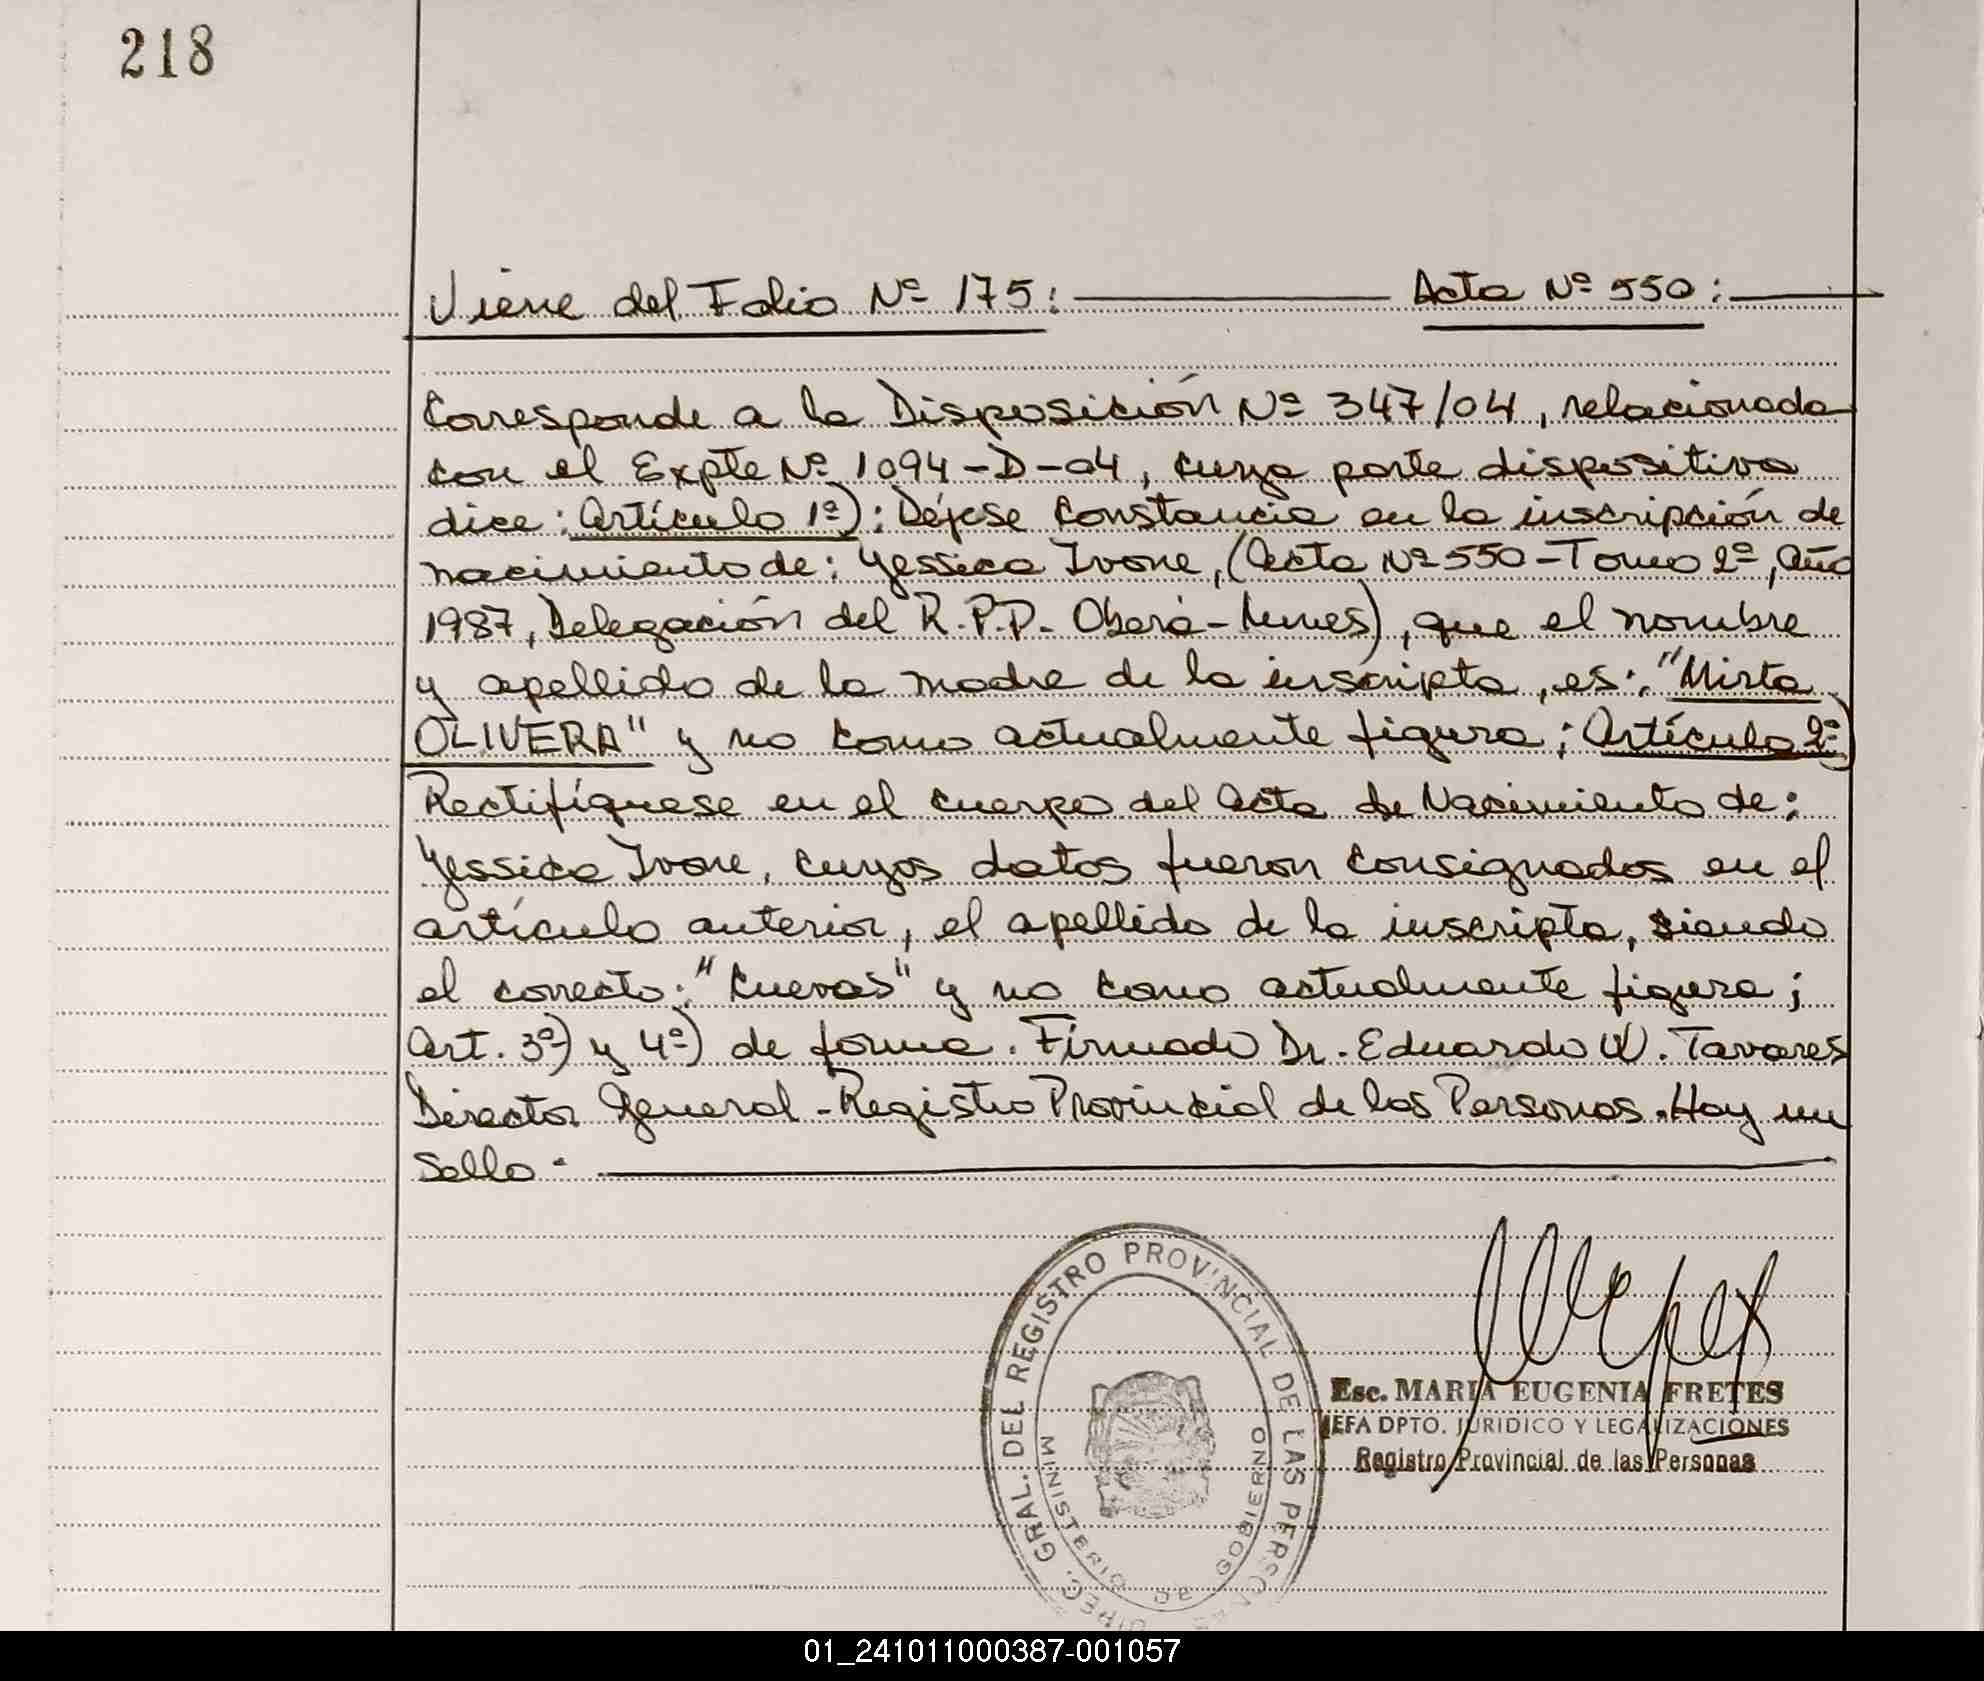 218
Viene del Folio Nº 175: Acta Nº 550:
Corresponde a la Disposición Nº 347/04, relacionada
con el Expte Nº 1094-D-04, cuya parte dispositiva
dice: Artículo 1º): Déjese Constancia en la inscripción de
nacimiento de: Yessica Ivone, (Acta Nº 550-Tomo 2º, Año
1987, Delegación del R.P.P. Oberá-Mnes), que el nombre
y apellido de la madre de la inscripta, es: "Mirta
OLIVERA" y no como actualmente figura; Artículo 2º)
Rectifíquese en el cuerpo del Acta de Nacimiento de:
Yessica Ivone, cuyos datos fueron consignados en el
artículo anterior, el apellido de la inscripta, siendo
el correcto: "Cuevas" y no como actualmente figura;
Art. 3º) y 4º) de forma. Firmado Dr. Eduardo W. Tavares
Director General - Registro Provincial de las Personas. Hay un
Sello.
DIREC. GRAL. DEL REGISTRO PROVINCIAL DE LAS PERSONAS
MINISTERIO DE GOBIERNO
Esc. MARIA EUGENIA FRETES
JEFA DPTO. JURIDICO Y LEGALIZACIONES
Registro Provincial de las Personas
01_241011000387-001057